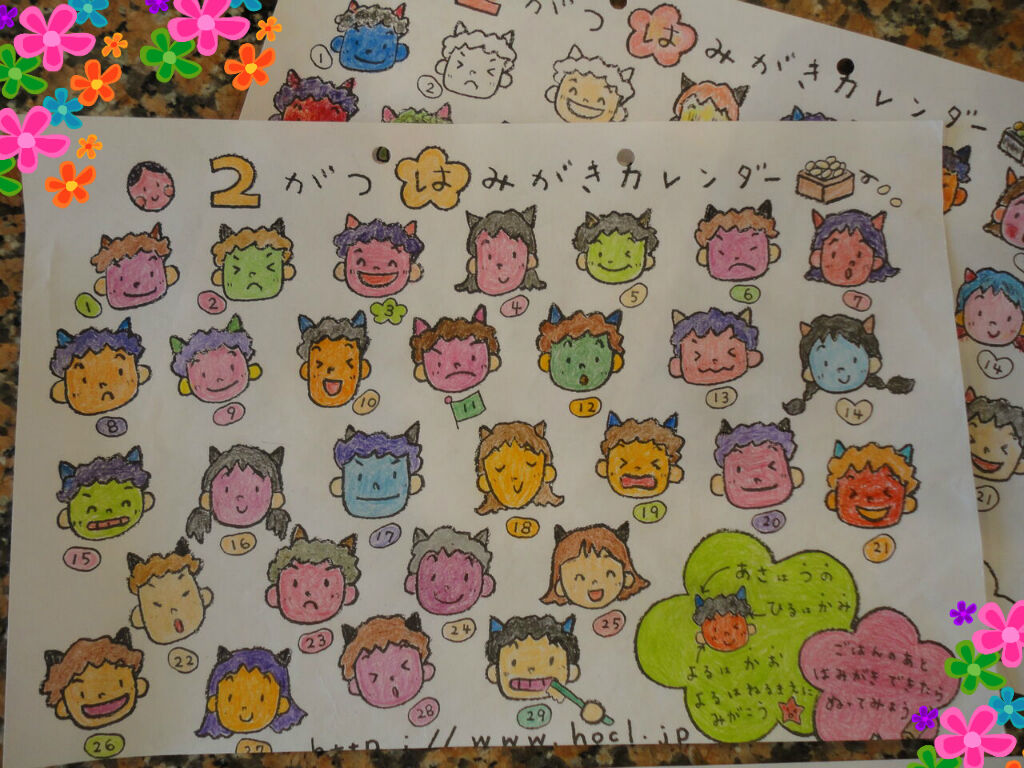 がつ はみがきカレンダー
1
2
14
21
2がつ はみがきカレンダー
1 2 3 4 5 6 7
8 9 10 11 12 13 14
15 16 17 18 19 20 21
22 23 24 25
26 27 28 29
あさはうの
ひるはかみ
よるはかお
よるはねるまえに
みがこう
ごはんのあと
はみがきできたら
ぬってみよう
http://www.hocl.jp